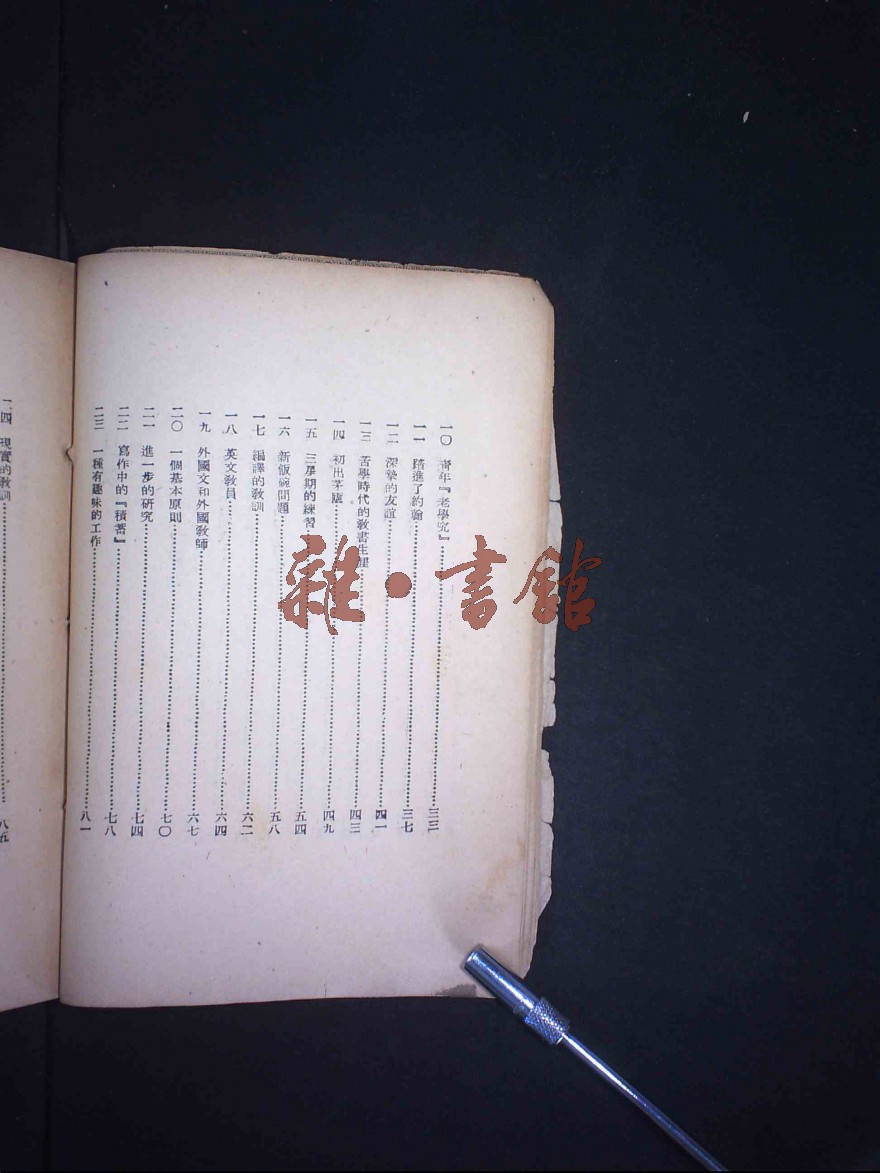 一〇 青年『老學究』 三三
一一 踏進了約翰 三七
一二 深摯的友誼 四一
一三 苦學時代的教書生涯 四三
一四 初出茅廬 四九
一五 三星期的練習 五四
一六 新飯碗問題 五八
一七 編譯的教訓 六二
一八 英文教員 六四
一九 外國文和外國教師 六七
二〇 一個基本原則 七〇
二一 進一步的研究 七四
二二 寫作中的『積蓄』 七八
二三 一種有趣味的工作 八一
二四 現實的教訓 八五
雜·書館